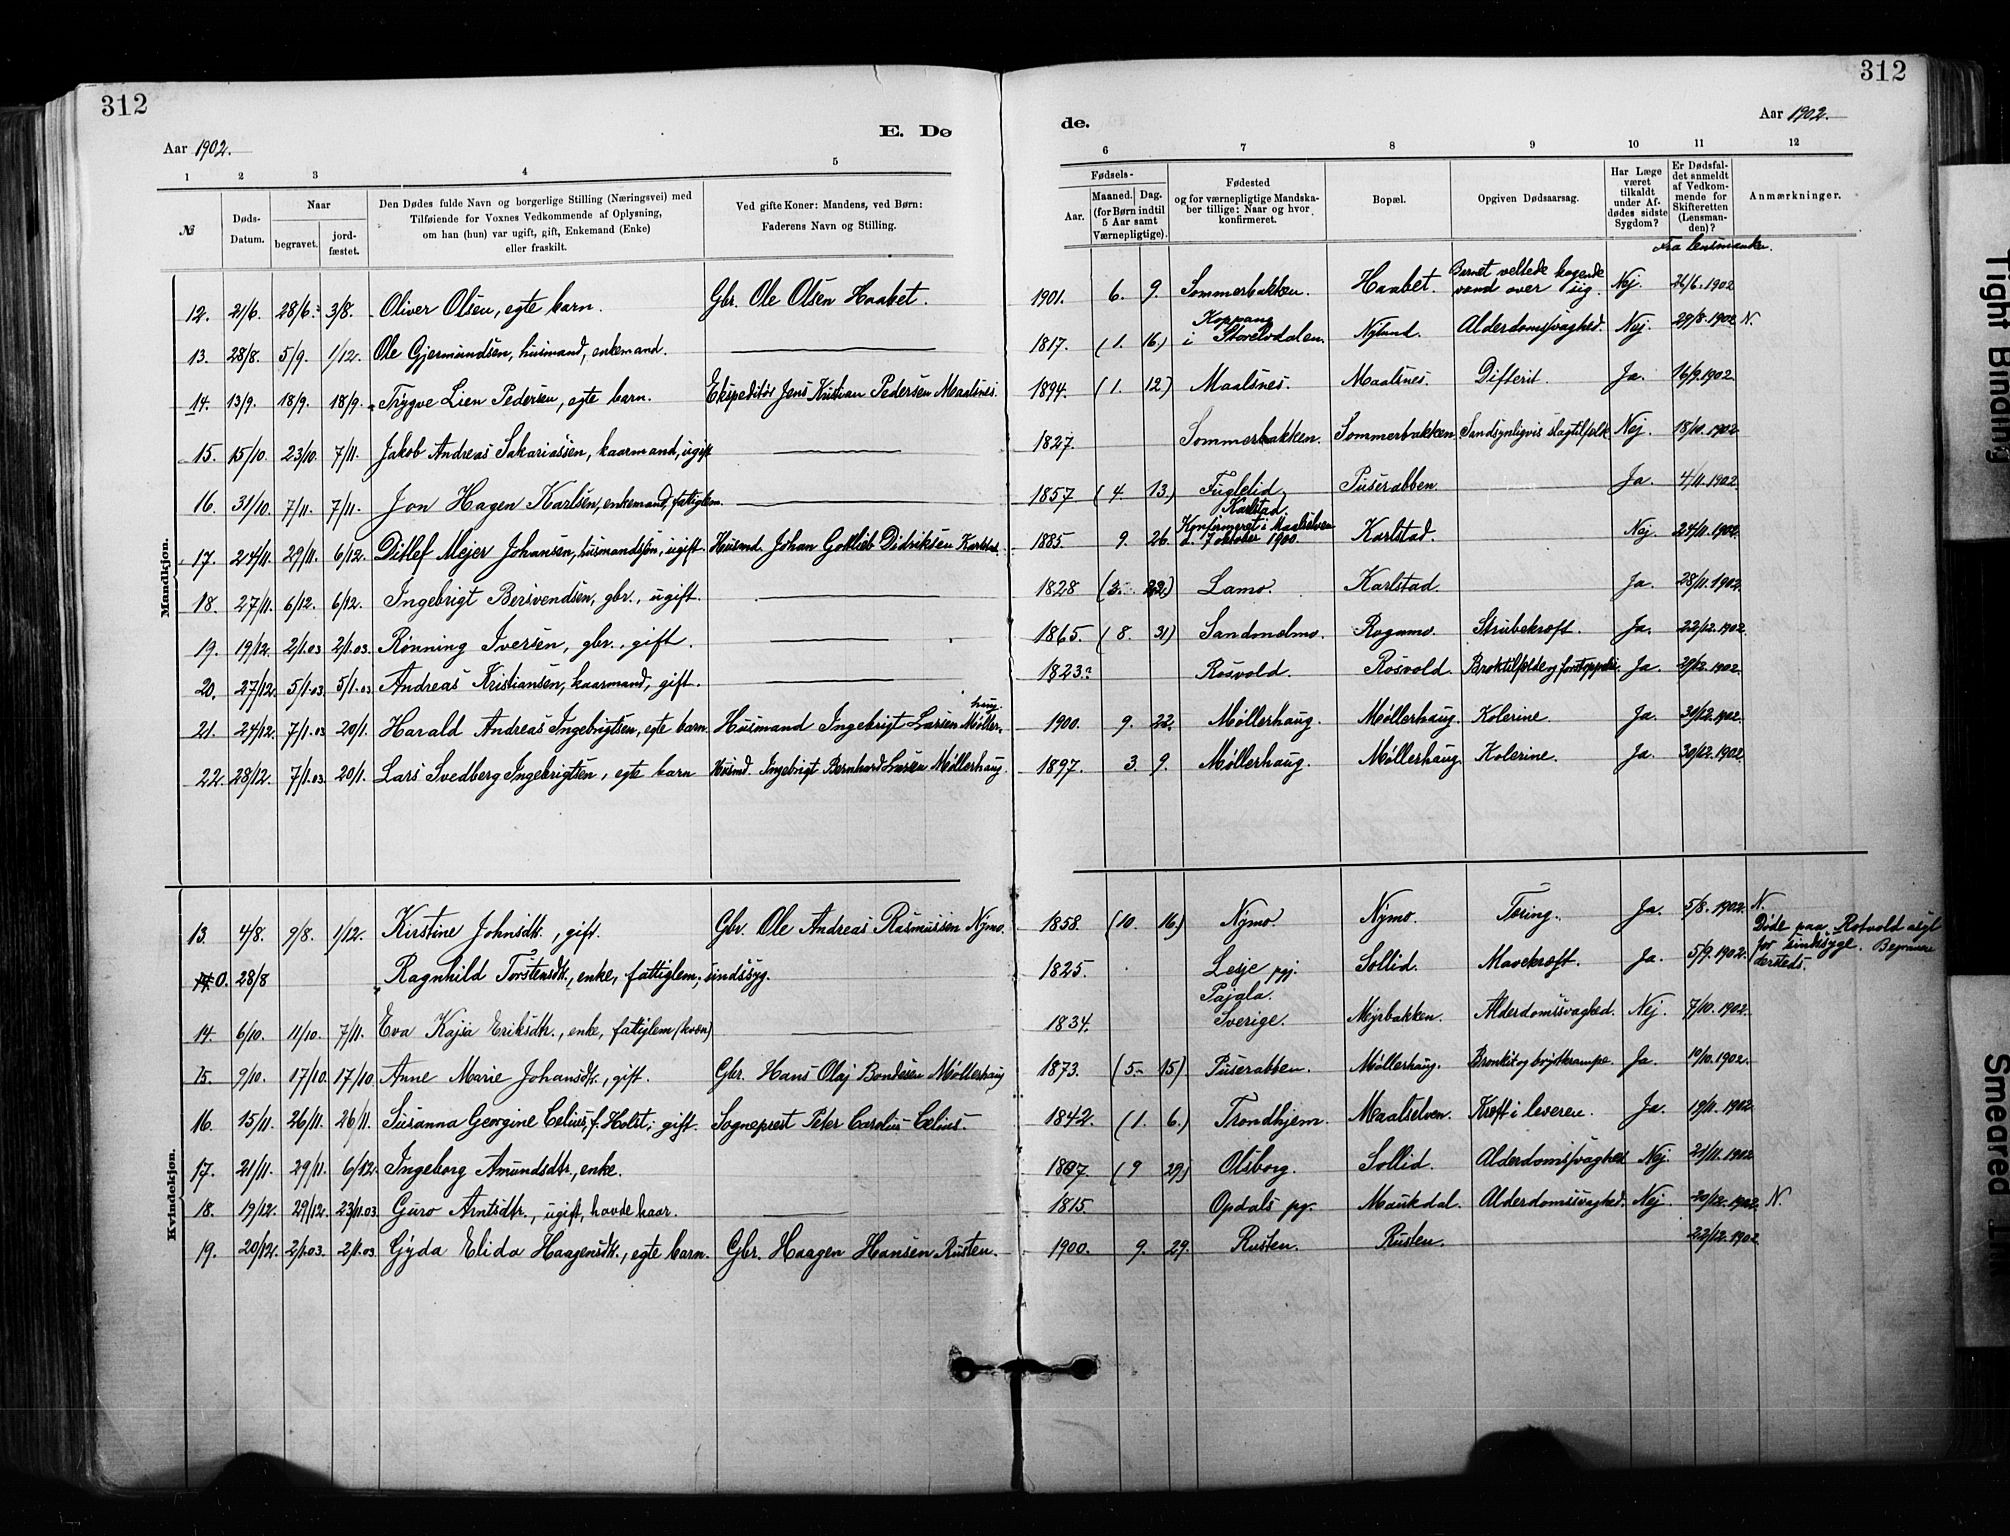 312
312
Aar 1902.
E. Dø
de.
Aar 1902.
1 2 3 4 5 6 7 8 9 10 11 12
№
Døds-Datum.
Naar
begravet.
jord-fæstet.
Den Dødes fulde Navn og borgerlige Stilling (Næringsvei) med
Tilføiende for Voxnes Vedkommende af Oplysning,
om han (hun) var ugift, gift, Enkemand (Enke)
eller fraskilt.
Ved gifte Koner: Mandens, ved Børn:
Faderens Navn og Stilling.
Fødsels-
Aar.
Maaned. Dag.
(for Børn indtil
5 Aar samt
Værnepligtige).
Fødested
og for værnepligtige Mandska-
ber tillige: Naar og hvor
konfirmeret.
Bopæl.
Opgiven Dødsaarsag.
Har Læge
været
tilkaldt
under Af-
dødes sidste
Sygdom?
Er Dødsfal-
det anmeldt
af Vedkom-
mende for
Skifteretten
(Lensman-
den)?
Anmærkninger.
Fra lensmanden.
Mandkjøn.
12. 21/6. 28/6. 3/8. Oliver Olsen, egte barn. Gbr. Ole Olsen Haabet. 1901. 6. 9. Sommerbakken. Haabet. Barnet veltede kogende vand over sig. Nej. 26/6.1902
13. 28/8. 5/9. 1/12. Ole Gjermundsen, husmand, enkemand. 1817. (1. 16.) Koppang i Storelvdalen. Nyland. Alderdomssvaghed. Nej. 29/8.1902 N.
14. 13/9. 18/9. 18/9. Trygve Lien Pedersen, egte barn. Ekspeditør Jens Kristian Pedersen Maalsnes. 1894. (1. 12.) Maalsnes. Maalsnes. Difterit. Ja. 16/9.1902
15. 15/10. 23/10. 7/11. Jakob Andreas Sakariassen, kaarmand, ugift 1827. Sommerbakken. Sommerbakken. Sandsynligvis slagtilfælde Nej. 18/10.1902
16. 31/10. 7/11. 7/11. Jon Hagen Karlsen, enkemand, fattiglem. 1857 (4. 13.) Fuglelid, Puserabben. Ja. 4/11.1902
17. 24/11. 29/11. 6/12. Ditlef Mejer Johansen, husmandssøn, ugift. Husmd. Johan Gotlieb Didriksen Karlstad. 1885 9. 26. Karlstad. Konfirmeret i Maalselven d. 7 oktober 1900. Karlstad. Nej. 24/11.1902
18. 27/11. 6/12. 6/12. Ingebrigt Bersvendsen, gbr., ugift. 1828 (3. 22.) Lamo. Karlstad. Ja. 28/11.1902
19. 19/12. 2/1.03 2/1.03. Rønning Iversen, gbr., gift. 1865. (8. 31) Sandmelmo. Rognmo. Strubekræft. Ja. 22/12.1902
20. 27/12. 5/1.03 5/1.03 Andreas Kristiansen, kaarmand, gift. 1823. Rosvold. Rosvold. Broktilfælde og forstoppelse. Ja. 29/12.1902
21. 24/12. 7/1.03 20/1. Harald Andreas Ingebrigtsen, egte barn. Husmand Ingebrigt Larsen Møllerhaug. 1900. 9. 22. Møllerhaug. Møllerhaug. Kolerine Ja. 30/12.1902
22. 28/12. 7/1.03 20/1. Lars Svedberg Ingebrigtsen, egte barn Husmd. Ingebrigt Bernhard Larsen Møllerhaug. 1897. 3. 9. Møllerhaug. Møllerhaug. Kolerine. Ja. 30/12.1902
Kvindekjøn.
13. 4/8. 9/8. 1/12. Kirstine Johnsdt., gift. Gbr. Ole Andreas Rasmussen Nymo. 1858. (10. 16.) Nymo. Nymo. Tæring. Ja. 5/8.1902. N.
0. 28/8 Ragnhild Torstensdt., enke, fattiglem, sindssyg. 1825. Lesje pgj. Sollid. Mavekræft. Ja. 5/9.1902. Døde paa Rotvold asyl for sindssyge. Begravet dersteds.
14. 6/10. 11/10. 7/11. Eva Kajsa Eriksdtr., enke, fattiglem (kvæn) 1834. Pajala. Sverige. Myrbakken. Alderdomssvaghed. Nej. 7/10.1902
15. 9/10. 17/10. 17/10. Anne Marie Johansdt., gift. Gbr. Hans Olaj Bondesen Møllerhaug 1873. (5. 15) Puserabben. Møllerhaug. Bronkit og brystkrampe. Ja. 10/10.1902.
16. 15/11. 26/11. 26/11. Susanna Georgine Celius, f. Holst, gift. Sogneprest Peter Carolus Celius. 1842. (1. 6.) Trondhjem. Maalselven. Kræft i leveren. Ja. 19/11.1902
17. 21/11. 29/11. 6/12. Ingeborg Amundsdtr., enke. 1807. (9 29) Olsborg. Sollid. Alderdomssvaghed Nej. 21/11.1902
18. 19/12. 29/12. 23/1.03. Guro Arntsdtr., ugift, havde kaar. 1815. Opdals pg. Maukdal. Alderdomssvaghed. Nej. 20/12.1902. N.
19. 20/12. 2/1.03. 2/1.03 Gyda Elida Haagensdt., egte barn. Gbr. Haagen Hansen Rusten. 1900. 9. 29. Rusten. Rusten. 22/12.1902
Tight Binding
Smeared Ink